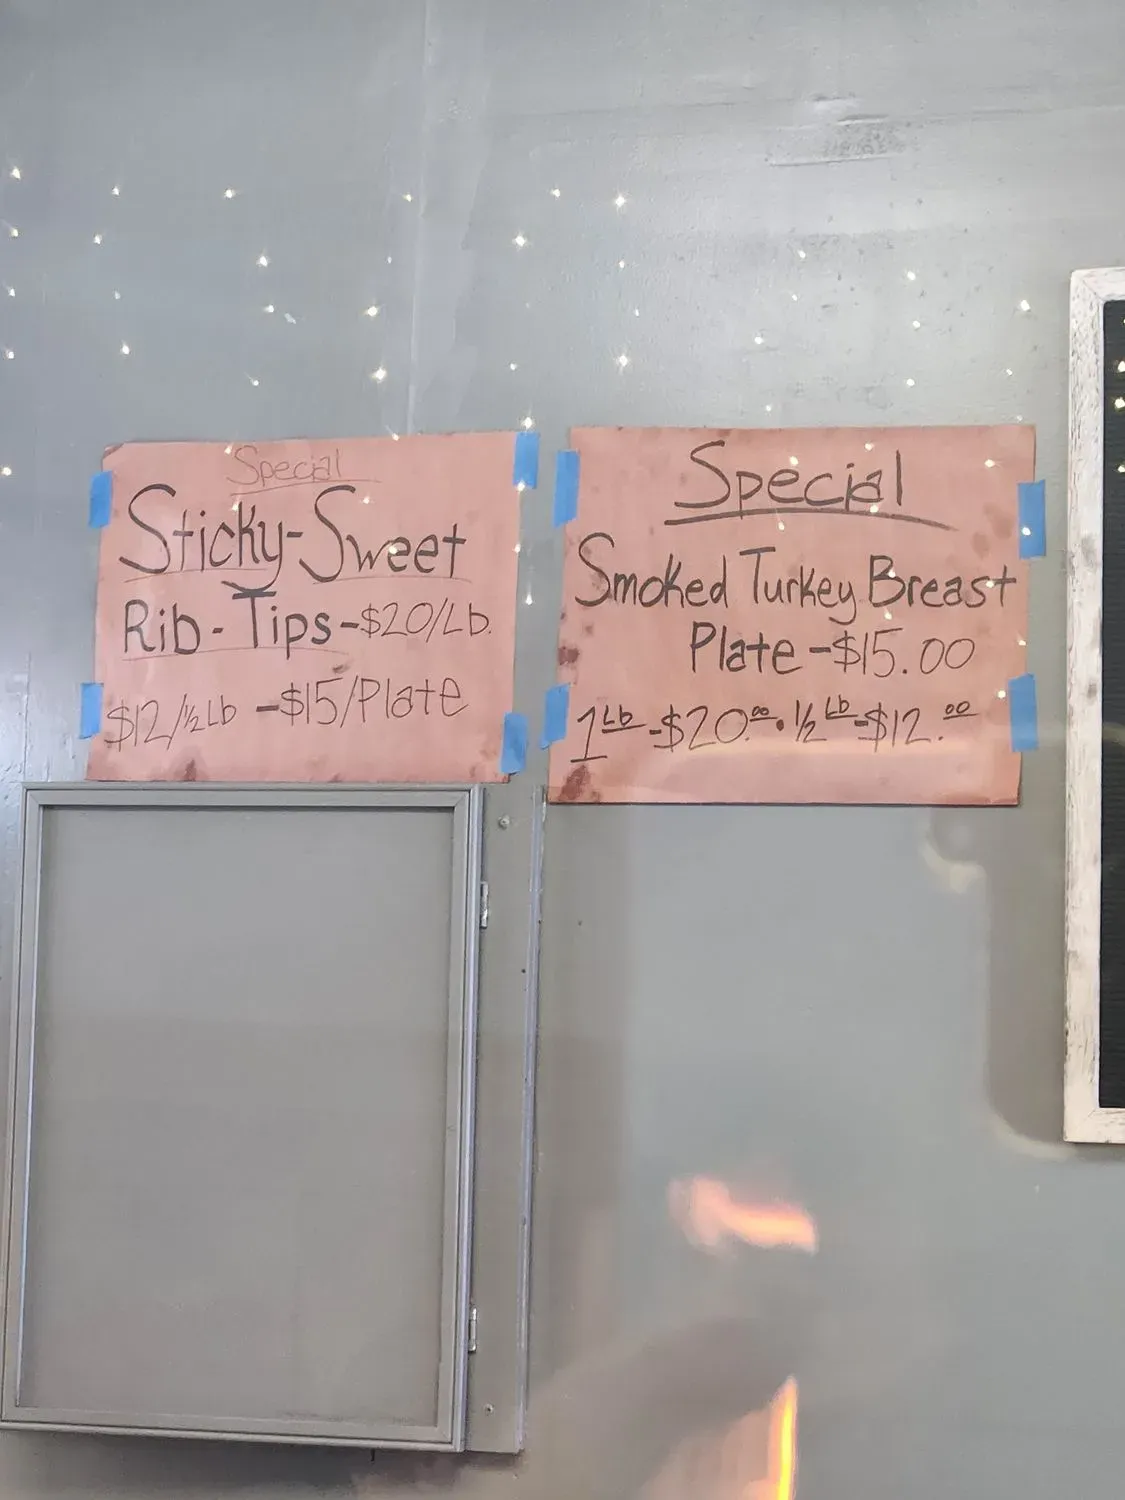 Special
Sticky-Sweet
Rib-Tips-$20/Lb.
$12/½Lb -$15/Plate
Special
Smoked Turkey Breast
Plate-$15.00
1 Lb-$20.00 • ½ Lb-$12.00